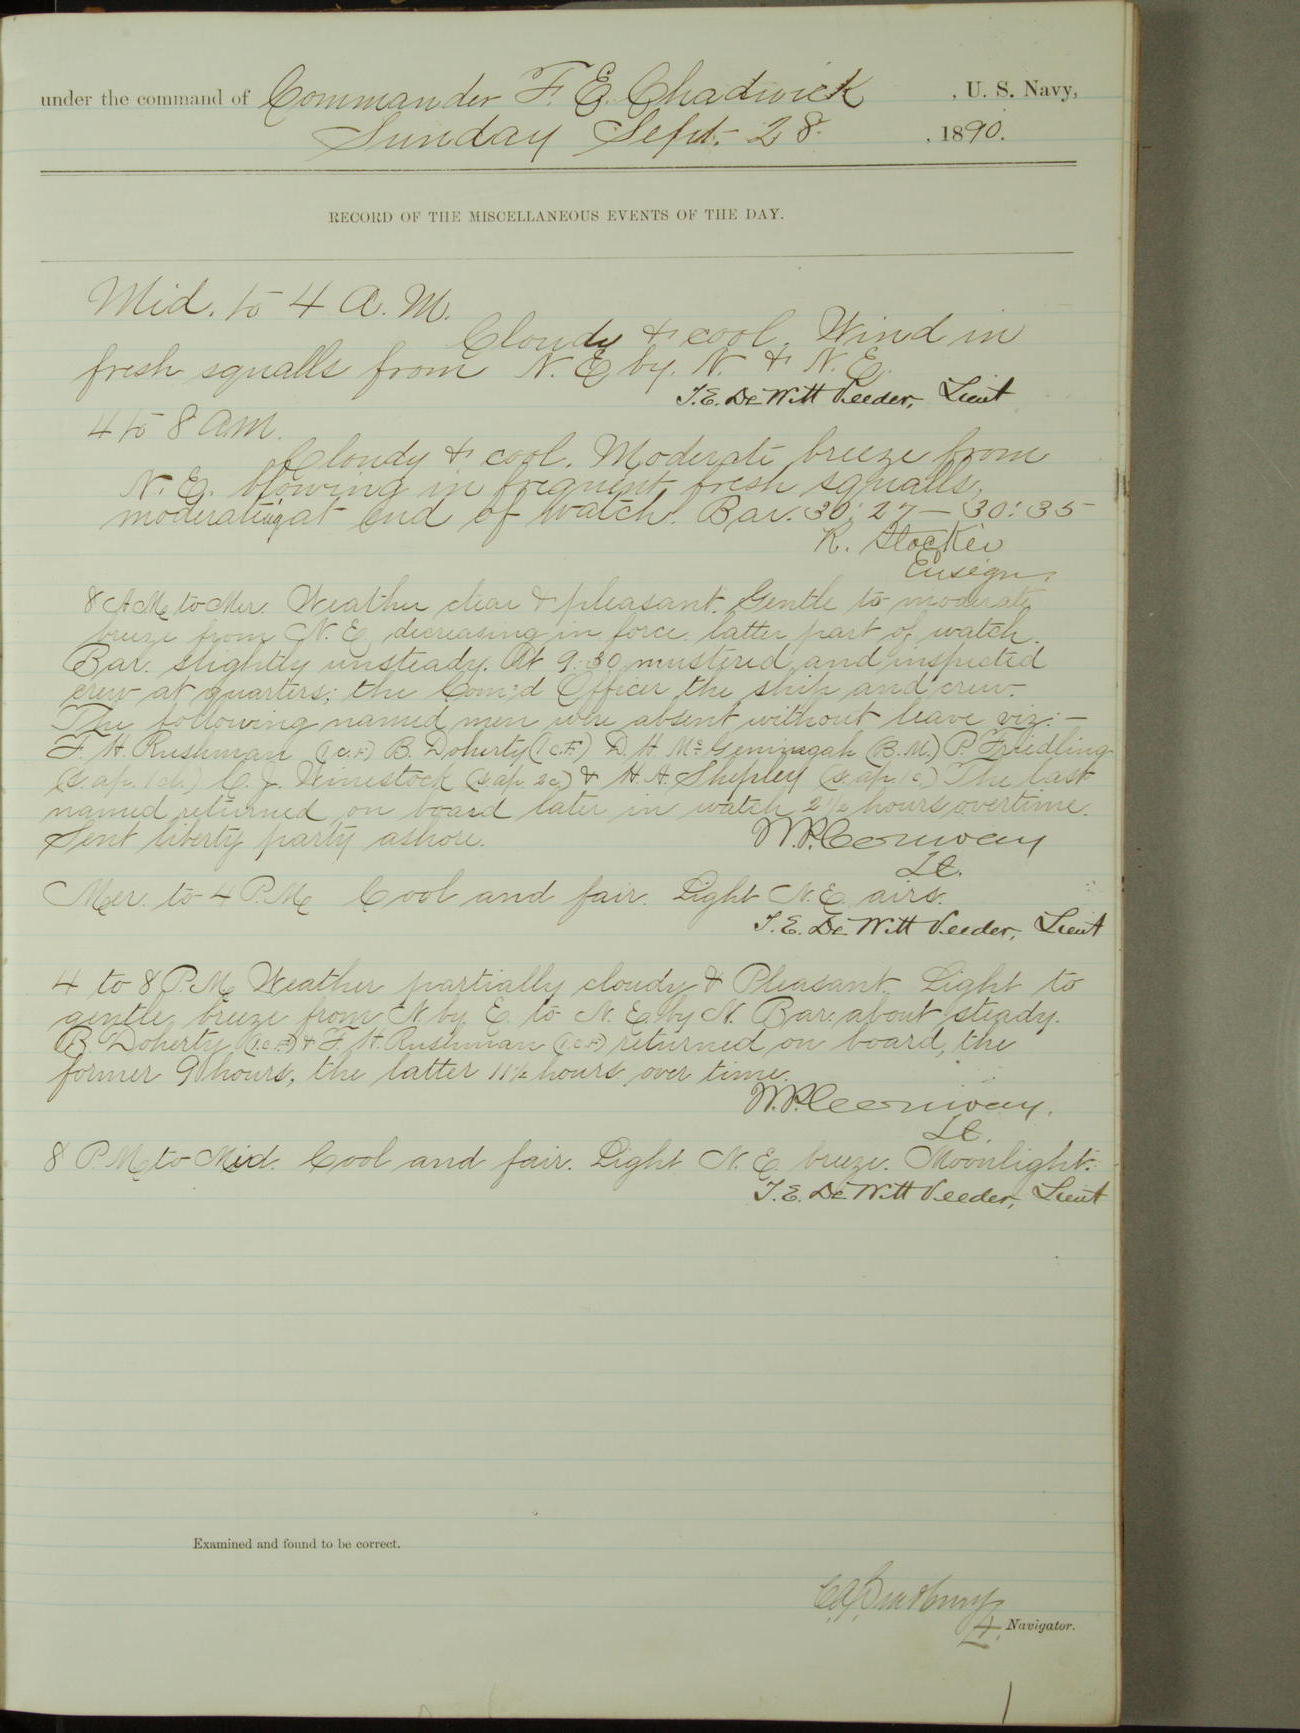 under the command of Commander F. E. Chadwick , U. S. Navy,
Sunday Sept. 28. , 1890.
RECORD OF THE MISCELLANEOUS EVENTS OF THE DAY.
Mid. to 4 A. M.
Cloudy & cool. Wind in
fresh squalls from N. E by. N. & N. E.
T. E. De Witt Veeder, Lieut
4 to 8 A.M.
Cloudy & cool. Moderate breeze from
N. E. blowing in frequent fresh squalls,
moderating at end of watch. Bar. 30: 27 — 30: 35
R. Stocker
Ensign.
8 AM to Mer. Weather clear & pleasant. Gentle to moderate
breeze from N. E. decreasing in force latter part of watch.
Bar. slightly unsteady. At 9:30 mustered and inspected
crew at quarters; the Com'd Officer the ship and crew.
The following named men were absent without leave viz:—
F. H. Rushman (1c.F.) B. Doherty (1c.F.) D. H. (B.M.) P. Friedling
(s. ap. 1cl.) C. J. Winestock (s. ap. 2c.) & H. A. Shepley (s. ap. 1c.) The last
named returned on board later in watch 2½ hours overtime.
Sent liberty party ashore.
W. P. Conway
Lt.
Mer. to 4 P.M. Cool and fair. Light N. E. airs.
T. E. De Witt Veeder, Lieut
4 to 8 P.M. Weather partially cloudy & Pleasant. Light to
gentle breeze from N. by E. to N. E. by N. Bar. about steady.
B. Doherty (1c.F.) & F. H. Rushman (1c.F.) returned on board, the
former 9 hours, the latter 11½ hours over time.
W. P. Conway.
Lt.
8 P.M. to Mid. Cool and fair. Light N. E. breeze. Moonlight.
T. E. De Witt Veeder, Lieut
Examined and found to be correct.
Navigator.